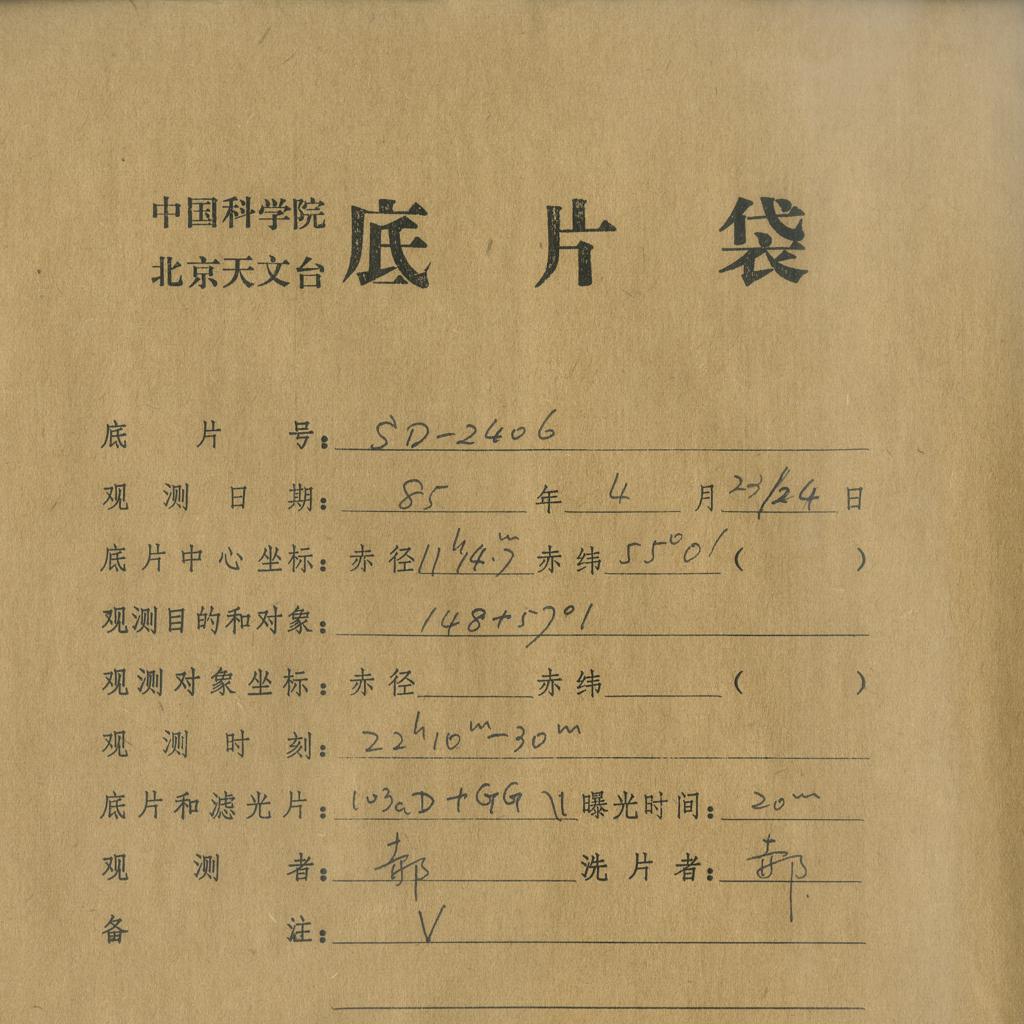 中国科学院
北京天文台
底片袋
底片号: SD-2406
观测日期: 85年4月23/24日
底片中心坐标: 赤径11ʰ14.ᵐ7 赤纬55°01 ( )
观测目的和对象: 148+57°1
观测对象坐标: 赤径 赤纬 ( )
观测时刻: 22ʰ10ᵐ-30ᵐ
底片和滤光片: 103aD+GG 曝光时间: 20ᵐ
观测者: 郝 洗片者: 郝
备注: V